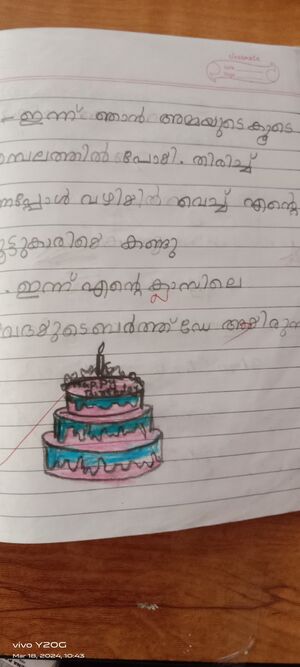 classmate
Date
Page
- ഇന്ന് ഞാൻ അമ്മയുടെ കൂടെ
മ്പലത്തിൽ പോയി. തിരിച്ച്
ന്നപ്പോൾ വഴിയിൽ വെച്ച് എന്റെ
കൂട്ടുകാരിയെ കണ്ടു
. ഇന്ന് എന്റെ ക്ലാസിലെ
യുടെ ബർത്ത് ഡേ
Happy
Birthday
vivo Y20G
Mar 18, 2024, 10:43